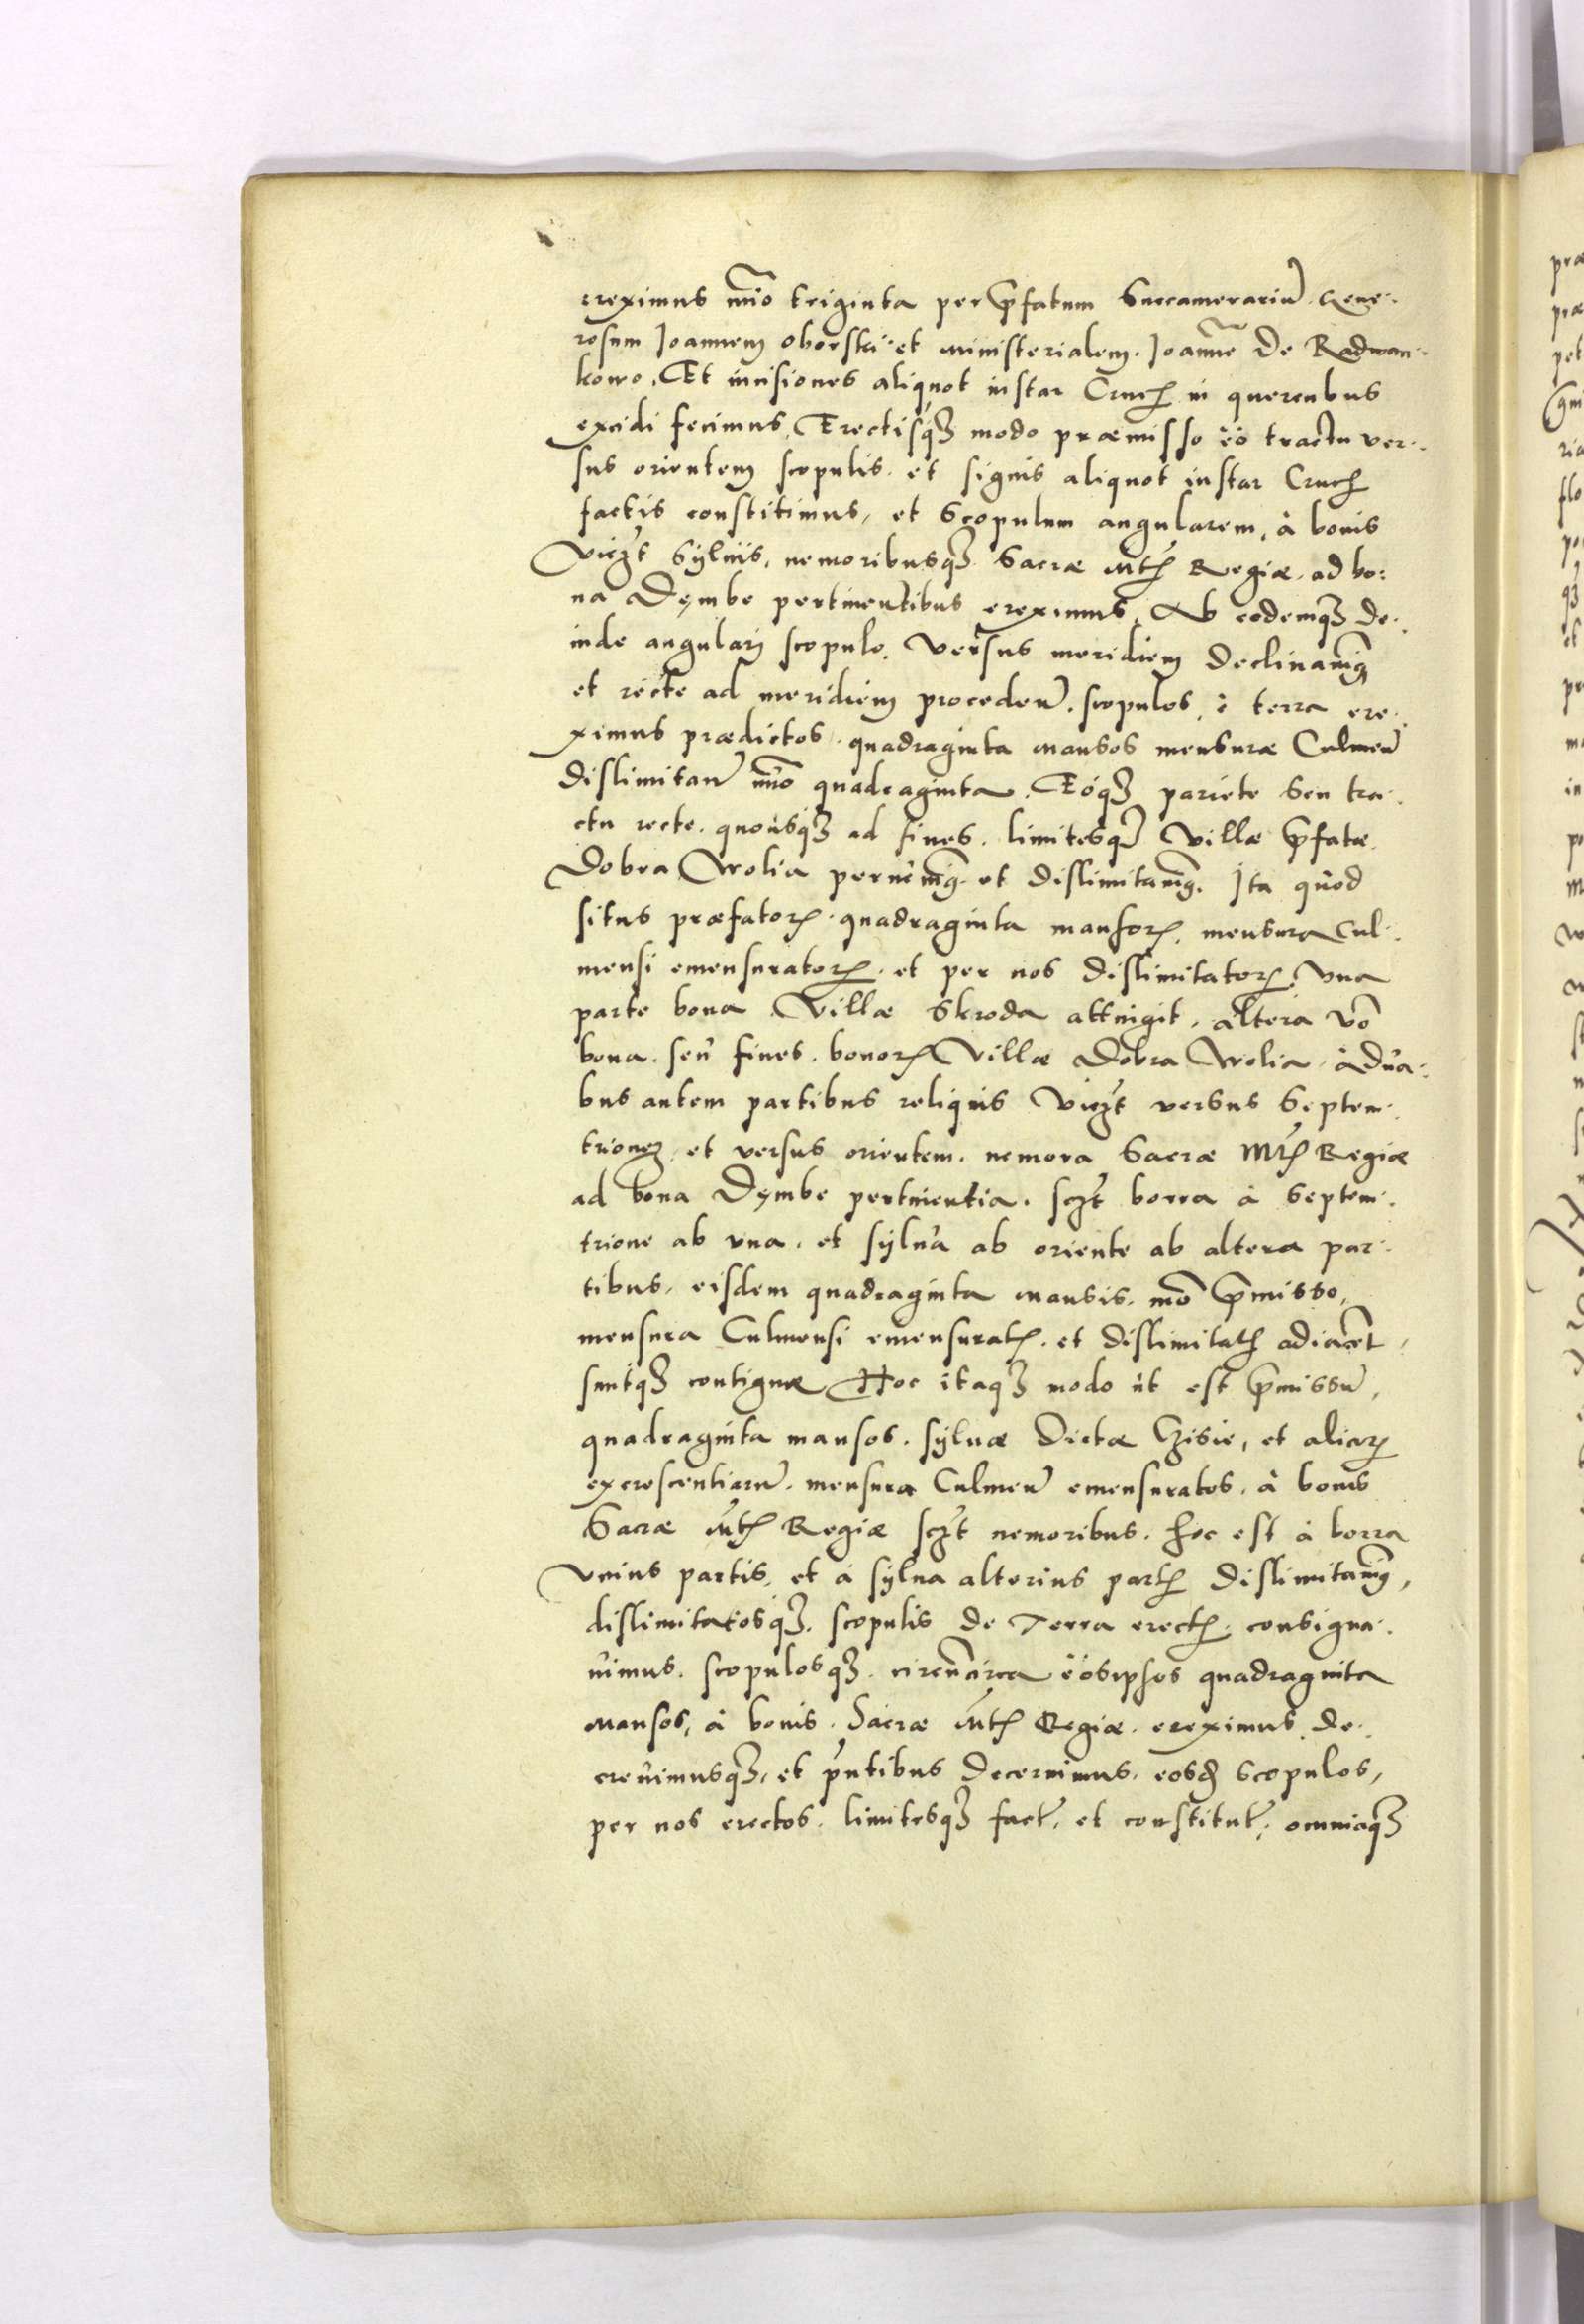 rreximus nūo triginta per p̄fatum Succamerariū Gene-
rosum Joannem Oborski et ministerialem Joannē de Radwan-
kowo. Et incisiones aliquot instar Cruc̨ in quercubus
excidi fecimus, Erectisq3 modo præmisso eo tractu ver-
sus orientem scopulis et signis aliquot instar Cruc̨
factis constitimus, et Scopulum angularem, à bonis
Viczt Sylvis, nemoribusq3 Sacræ Mt̄ Regiæ ad bo:
na Dęmbe pertinentibus ereximus, Ab eodemq3 de-
inde angulari scopulo versus meridiem declinanr̄
et recte ad meridiem procedeñ scopulos è terra ere-
ximus prædictos quadraginta mansos mensuræ Culmeñ
dislimitañ nūo quadraginta. Eóq3 pariete seu tra-
ctu recte quousq3 ad fines limitesq3 Villæ p̄fatæ
Dobra Wolia perveniꝰ et dislimitamꝰ. Ita quod
situs præfatorꝝ quadraginta mansorꝝ mensura Cul-
mensi emensuratorꝝ et per nos dislimitatorꝝ Una
parte bona Villæ Skroda attingit, altera vō
bona seu fines bonorꝝ Villæ Dobra Wolia, à dua-
bus autem partibus reliquis Viczt versus Septem-
trionem et versus orientem nemora Sacræ Mt̄ Regiæ
ad bona Dęmbe pertinentia, sczt borra à Septem-
trione ab una, et sylva ab oriente ab altera par-
tibus, eisdem quadraginta mansis mō p̄misso,
mensura Culmensi emensuratꝭ et dislimitatꝭ adiacēt
suntq3 contiguæ Hoc itaq3 modo ut est p̄missū,
quadraginta mansos sylvæ dictæ Czisie, et aliarꝝ
excrescentiarū mensura Culmeñ emensuratos, à bonis
Sacræ Mt̄ Regiæ sczt nemoribus, hoc est à borra
Unius partis, et à sylva alterius partꝭ dislimitamꝰ,
dislimitatosq3 scopulis de Terra erectꝭ consigna-
vimus, scopulosq3 circūcirca eosipsos quadraginta
mansos, à bonis Sacræ Mt̄ Regiæ ereximus, de-
crevimusq3, et p̄ntibus decernimus, eosd̄ scopulos,
per nos erectos limitesq3 factꝭ et constitutꝭ, omniaq3